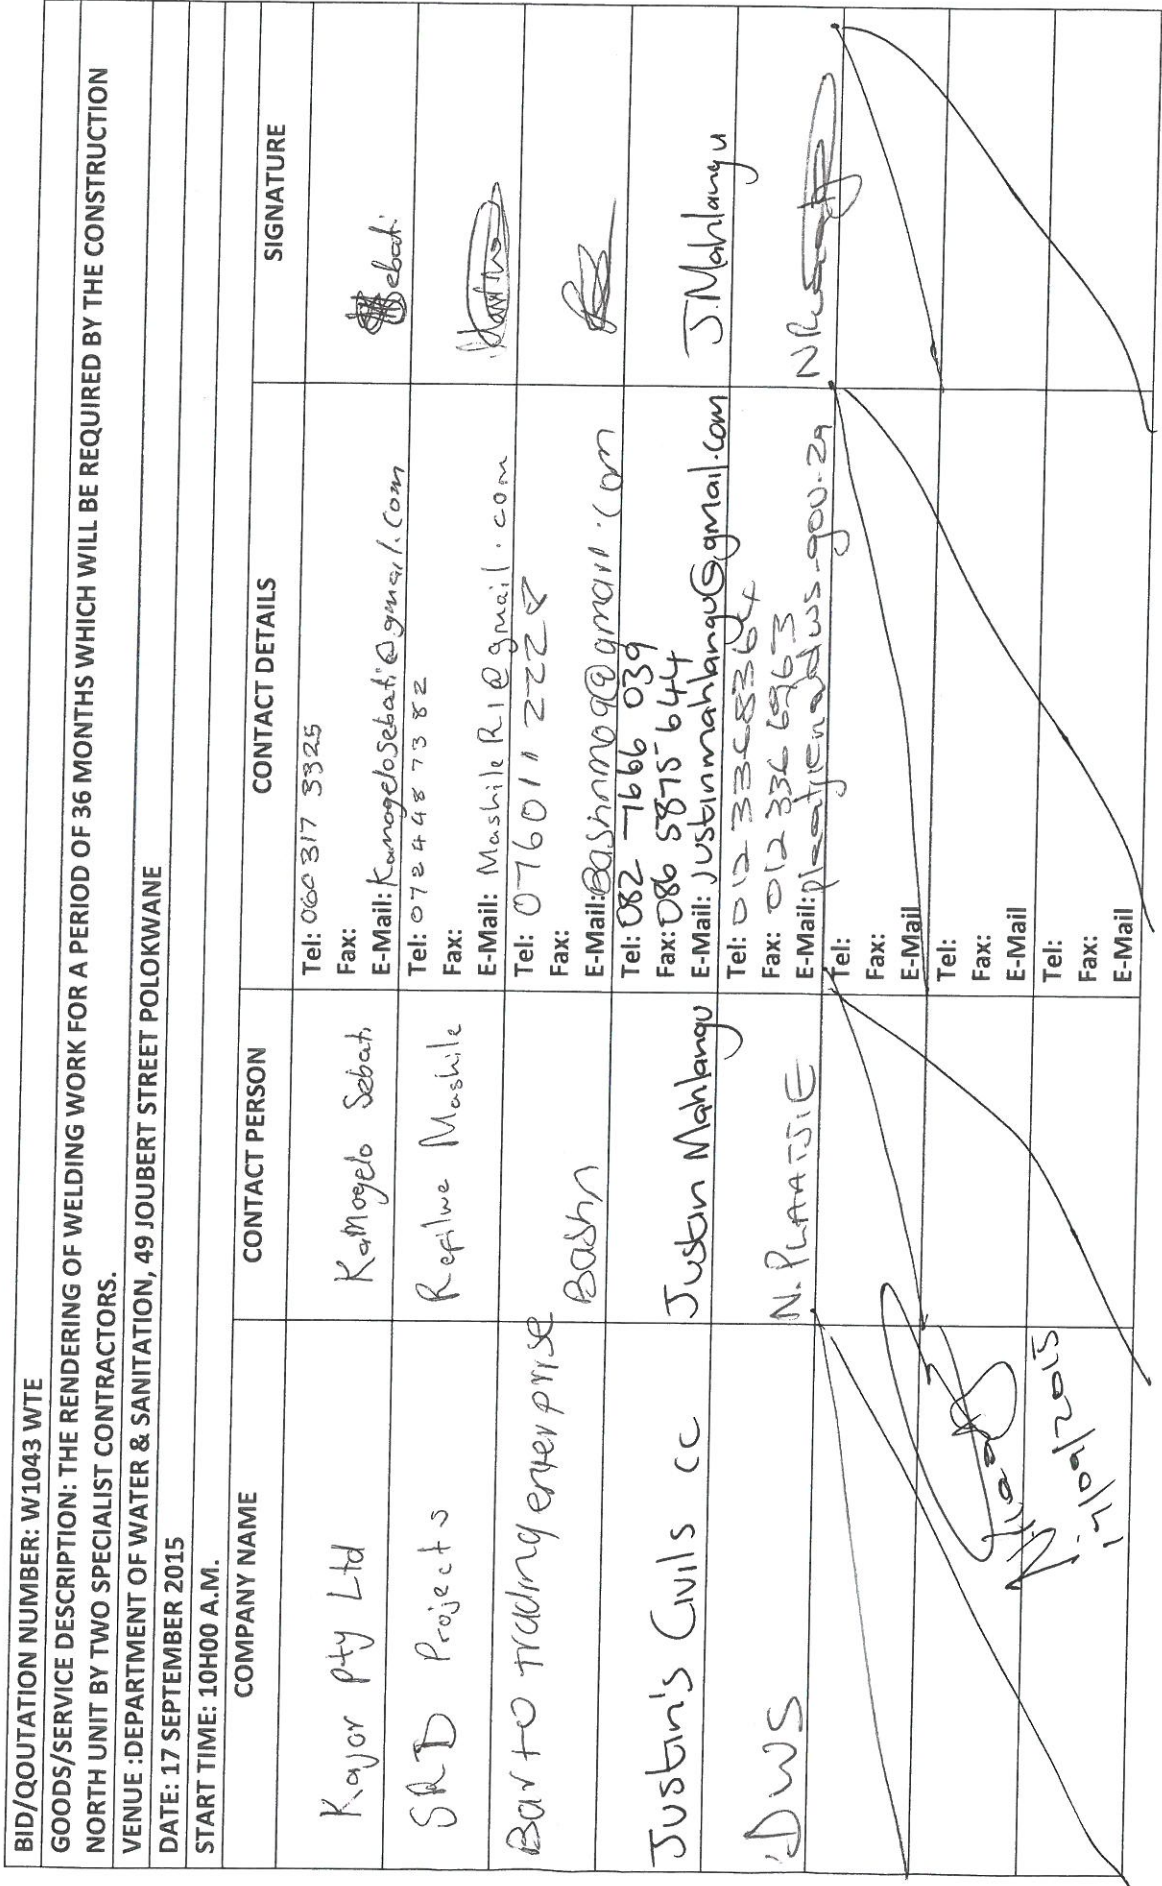 BID/QOUTATION NUMBER: W1043 WTE
GOODS/SERVICE DESCRIPTION: THE RENDERING OF WELDING WORK FOR A PERIOD OF 36 MONTHS WHICH WILL BE REQUIRED BY THE CONSTRUCTION
NORTH UNIT BY TWO SPECIALIST CONTRACTORS.
VENUE :DEPARTMENT OF WATER & SANITATION, 49 JOUBERT STREET POLOKWANE
DATE: 17 SEPTEMBER 2015
START TIME: 10H00 A.M.
COMPANY NAME CONTACT PERSON CONTACT DETAILS SIGNATURE
Kajor Pty Ltd Kamogelo Sebati
Tel: 060 317 3325
Fax:
E-Mail: Kamogelosebati@gmail.com
Sebati
SRD Projects Refilwe Mashile
Tel: 0724487382
Fax:
E-Mail: MashileR1@gmail.com
Barto trading enterprise Bashn
Tel: 076011 2228
Fax:
E-Mail: Bashnmog@gmail.com
Justin's Civils cc Justin Mahlangu
Tel: 082 7666 039
Fax: 086 5875 644
E-Mail: Justinmahlangu@gmail.com
J. Mahlangu
DWS N. PLAATJIE
Tel: 012 3368364
Fax: 012 336 6963
E-Mail:
Tel:
Fax:
E-Mail
Tel:
Fax:
E-Mail
Tel:
Fax:
E-Mail
17/09/2015